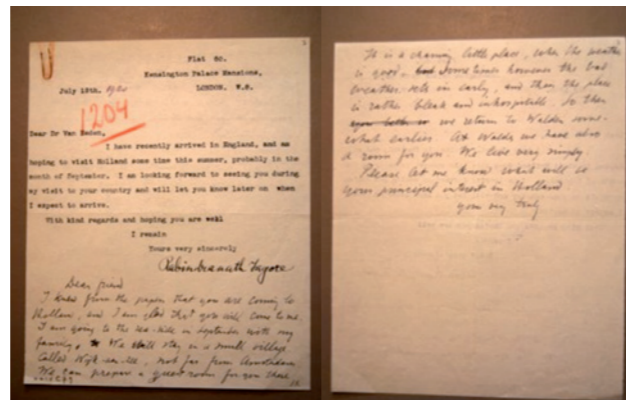 Flat 8c.
Kensington Palace Mansions,
July 13th. 1920 LONDON. W.8.
1204
Dear Dr Van Eeden,
I have recently arrived in England, and am
hoping to visit Holland some time this summer, probably in the
month of September. I am looking forward to seeing you during
my visit to your country and will let you know later on when
I expect to arrive.
With kind regards and hoping you are well
I remain
Yours very sincerely
Rabindranath Tagore
Dear friend
I knew from the papers that you are coming to
Holland, and I am glad that you will come to me.
I am going to the sea-side in september with my
family. We shall stay in a small village
called Wijk-aan-Zee, not far from Amsterdam
We can prepare a guest room for you there
It is a charming little place, when the weather
is good, sometimes however the bad
weather sets in early, and then the place
is rather bleak and inhospitable. So then
we return to Walden some-
what earlier. At Walden we have also
a room for you. We live very simply.
Please let me know what will be
your principal interest in Holland
yours very truly